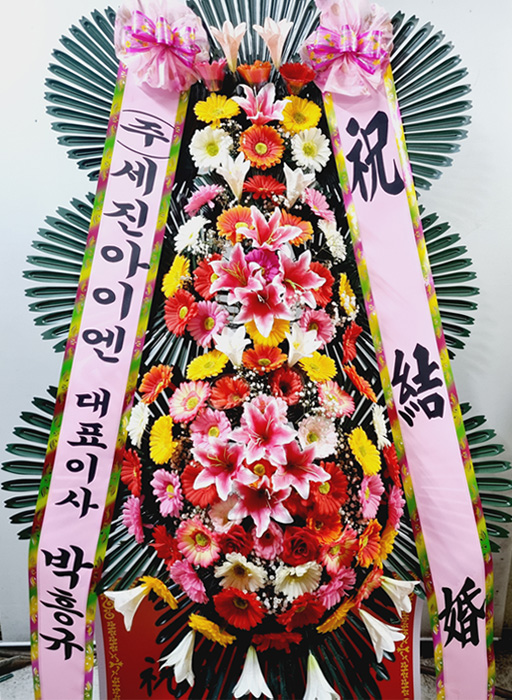 (주)세진아이엔 대표이사 박흥규
祝 結 婚
祝